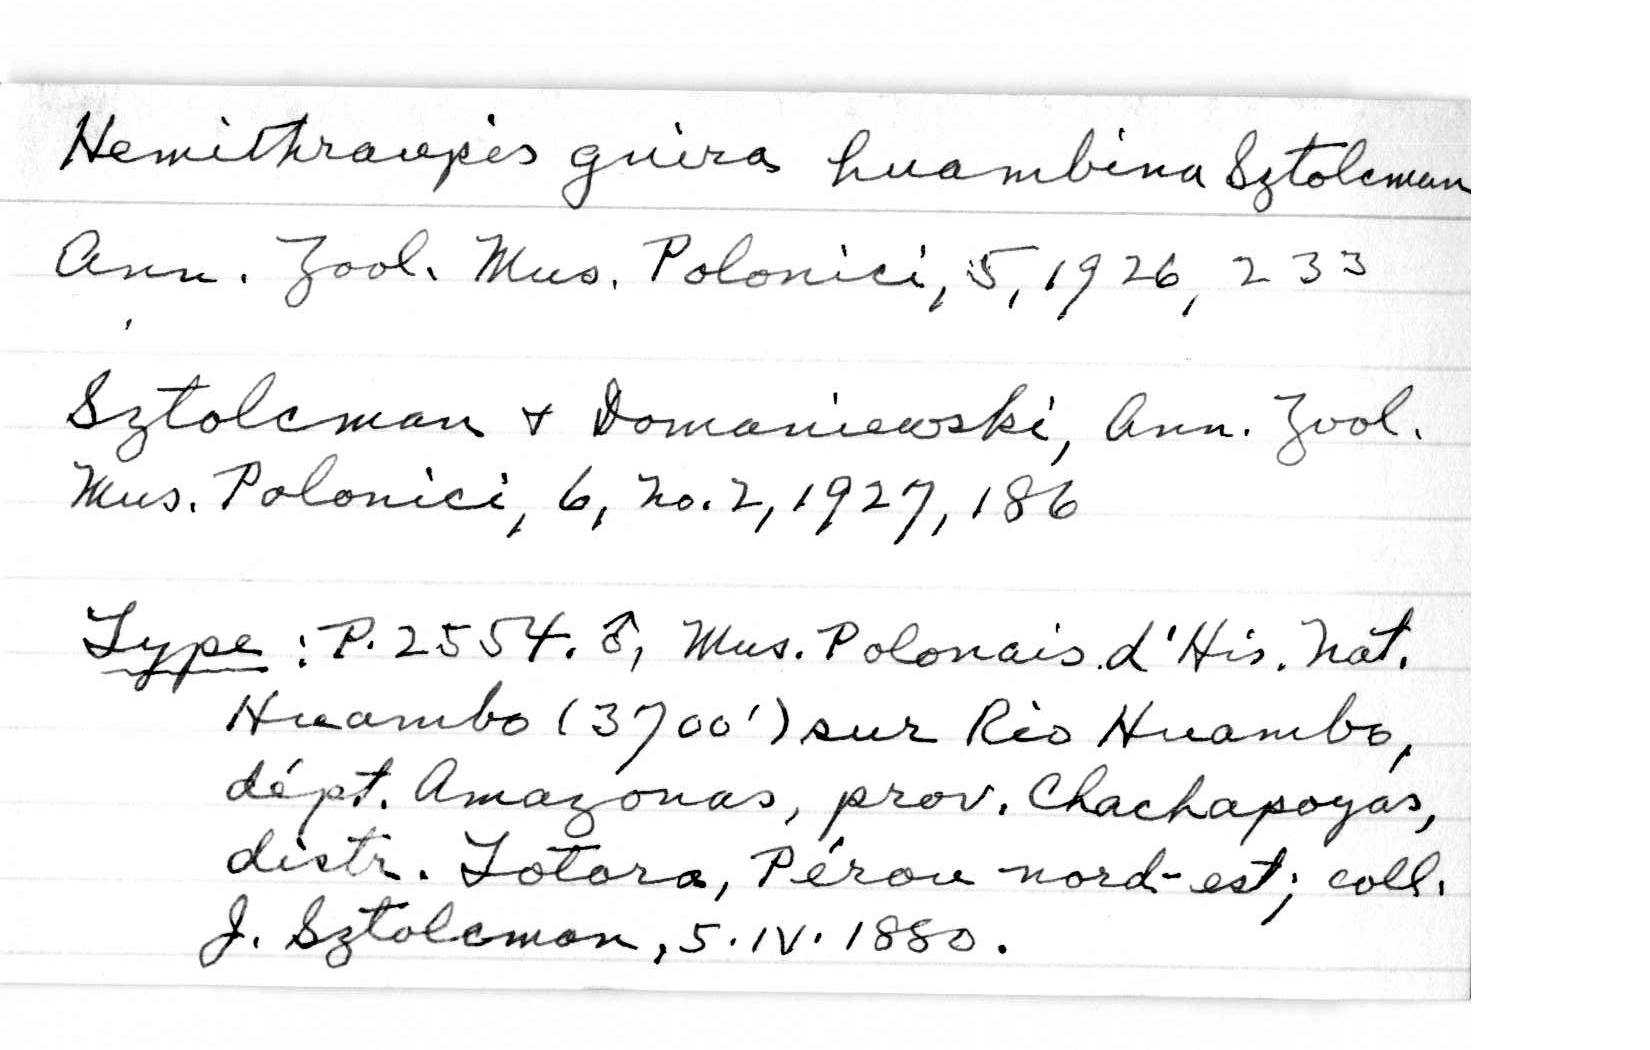 Hemithraupis guira huambina Sztolcman
Ann. Zool. Mus. Polonici, 5, 1926, 233
Sztolcman + Domaniewski, Ann. Zool.
Mus. Polonici, 6, no. 2, 1927, 186
Type : P. 2554. ♂, Mus. Polonais d'His. Nat.
Huambo (3700') sur Rio Huambo,
dépt. Amazonas, prov. Chachapoyas,
distr. Totora, Pérou nord-est; coll.
J. Sztolcman, 5.IV.1880.